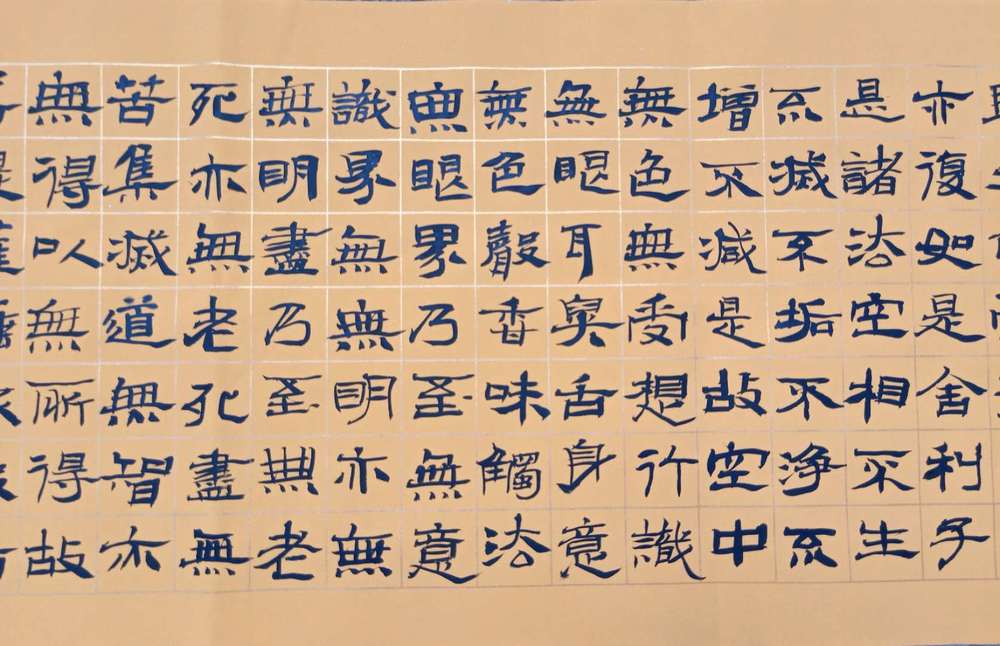 亦復如是舍利子
是諸法空相不生
不滅不垢不淨不
增不減是故空中
無色無受想行識
無眼耳鼻舌身意
無色聲香味觸法
無眼界乃至無意
識界無明亦無
無明盡乃至無老
死亦無老死盡無
苦集滅道無智亦
無得以無所得故